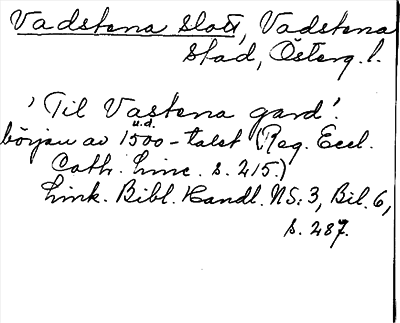 Vadstena slott, Vadstena
stad, Österg. l.
'Til Vastena gard'.
u.d.
början av 1500-talet (Reg. Eccl.
Cath. Linc. s. 215.)
Link. Bibl. Handl. NS: 3, Bil. 6,
s. 287.